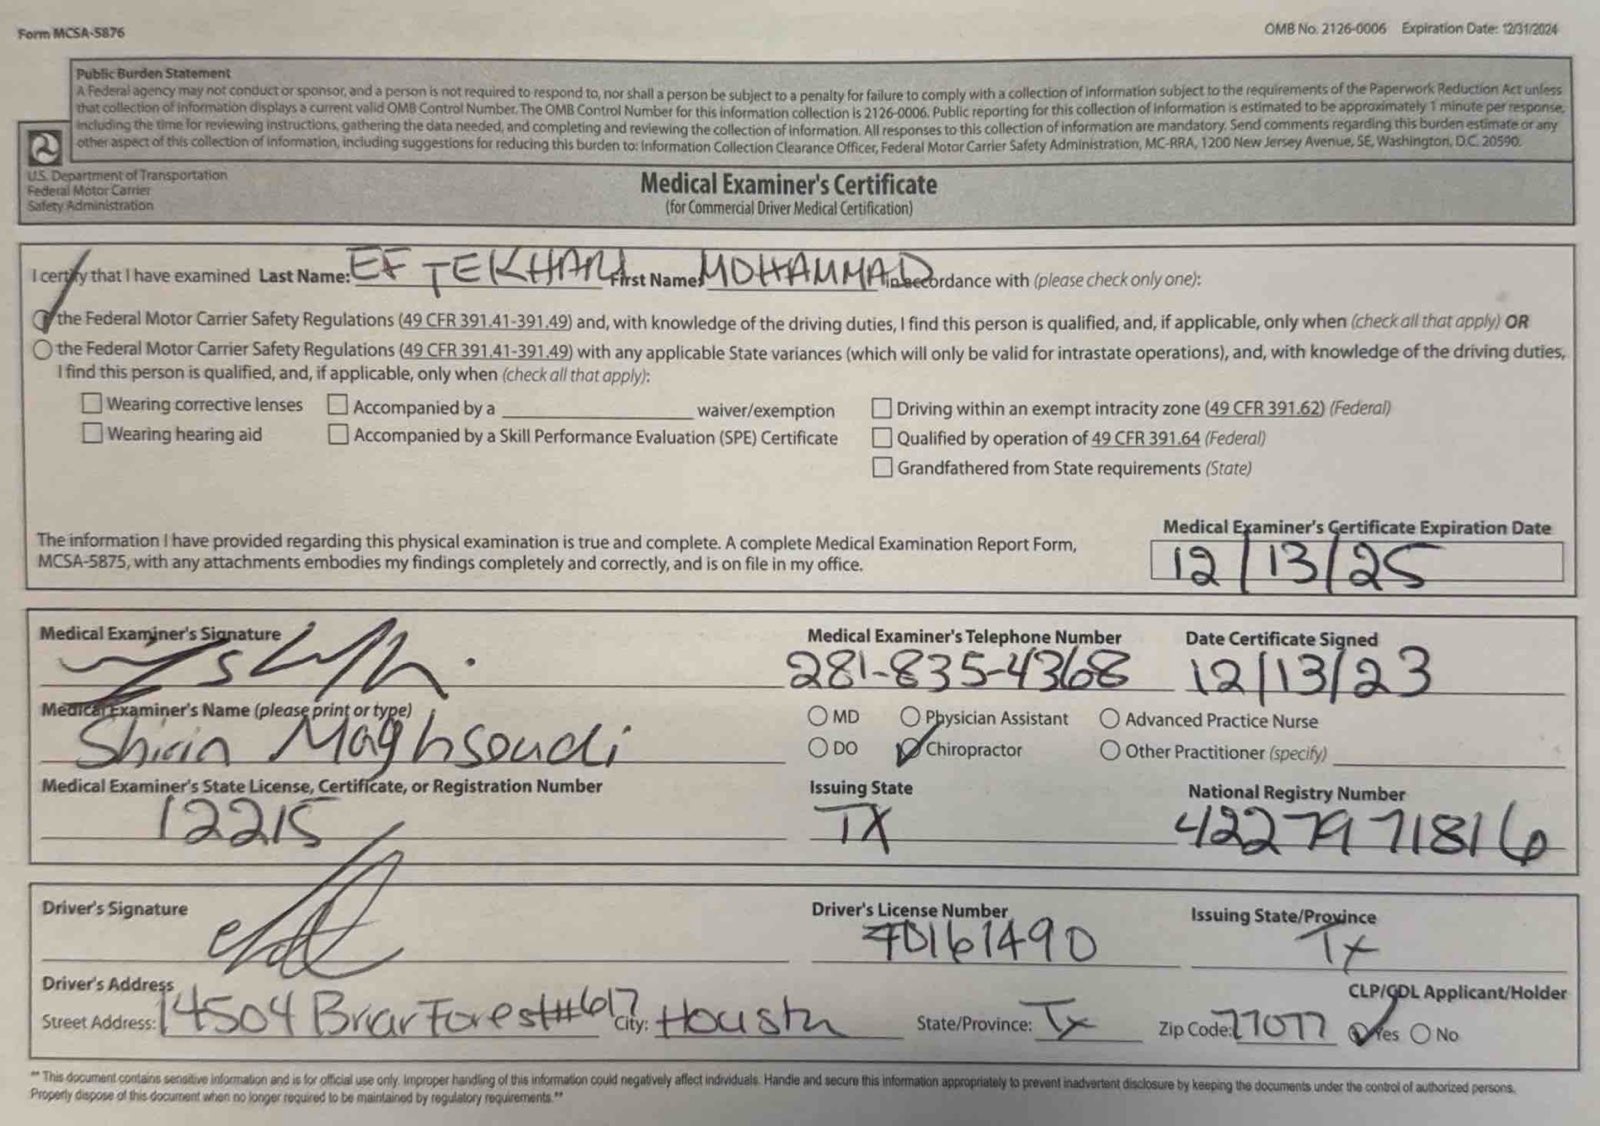 Form MCSA-5876
OMB No. 2126-0006 Expiration Date: 12/31/2024
Public Burden Statement
A Federal agency may not conduct or sponsor, and a person is not required to respond to, nor shall a person be subject to a penalty for failure to comply with a collection of information subject to the requirements of the Paperwork Reduction Act unless
that collection of information displays a current valid OMB Control Number. The OMB Control Number for this information collection is 2126-0006. Public reporting for this collection of information is estimated to be approximately 1 minute per response,
including the time for reviewing instructions, gathering the data needed, and completing and reviewing the collection of information. All responses to this collection of information are mandatory. Send comments regarding this burden estimate or any
other aspect of this collection of information, including suggestions for reducing this burden to: Information Collection Clearance Officer, Federal Motor Carrier Safety Administration, MC-RRA, 1200 New Jersey Avenue, SE, Washington, D.C. 20590.
U.S. Department of Transportation
Federal Motor Carrier
Safety Administration
Medical Examiner's Certificate
(for Commercial Driver Medical Certification)
I certify that I have examined Last Name: EFTEKHARI First Name: MOHAMMAD in accordance with (please check only one):
the Federal Motor Carrier Safety Regulations (49 CFR 391.41-391.49) and, with knowledge of the driving duties, I find this person is qualified, and, if applicable, only when (check all that apply) OR
the Federal Motor Carrier Safety Regulations (49 CFR 391.41-391.49) with any applicable State variances (which will only be valid for intrastate operations), and, with knowledge of the driving duties,
I find this person is qualified, and, if applicable, only when (check all that apply):
Wearing corrective lenses Accompanied by a waiver/exemption Driving within an exempt intracity zone (49 CFR 391.62) (Federal)
Wearing hearing aid Accompanied by a Skill Performance Evaluation (SPE) Certificate Qualified by operation of 49 CFR 391.64 (Federal)
Grandfathered from State requirements (State)
The information I have provided regarding this physical examination is true and complete. A complete Medical Examination Report Form,
MCSA-5875, with any attachments embodies my findings completely and correctly, and is on file in my office.
Medical Examiner's Certificate Expiration Date
12/13/25
Medical Examiner's Signature Medical Examiner's Telephone Number Date Certificate Signed
281-835-4368 12/13/23
Medical Examiner's Name (please print or type) MD Physician Assistant Advanced Practice Nurse
Shirin Maghsoudi DO Chiropractor Other Practitioner (specify)
Medical Examiner's State License, Certificate, or Registration Number Issuing State National Registry Number
12215 TX 4227971816
Driver's Signature Driver's License Number Issuing State/Province
40161490 Tx
Driver's Address CLP/CDL Applicant/Holder
Street Address: 14504 Briar Forest #617 City: Houston State/Province: Tx Zip Code: 77077 Yes No
** This document contains sensitive information and is for official use only. Improper handling of this information could negatively affect individuals. Handle and secure this information appropriately to prevent inadvertent disclosure by keeping the documents under the control of authorized persons.
Properly dispose of this document when no longer required to be maintained by regulatory requirements.**